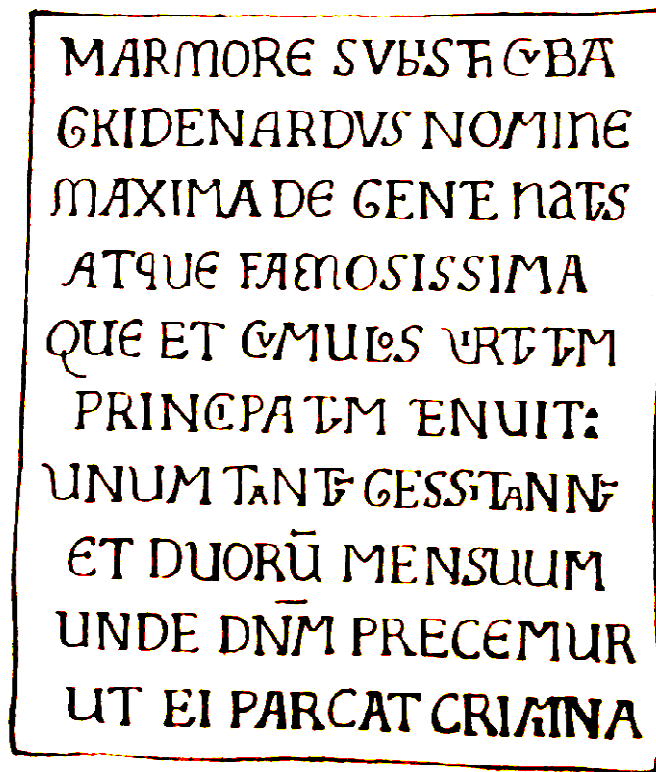 MARMORE SVBSTh CVBAT
GKIDENARDVS NOMINE
MAXIMA DE GENTE NATVS
ATQUE FAMOSISSIMA
QUE ET CVMULOS VIRTVTVM
PRINCIPATVM TENUIT:
UNUM TANTV GESSIT ANNV
ET DUORŪ MENSUUM
UNDE DN̄M PRECEMUR
UT EI PARCAT CRIMINA